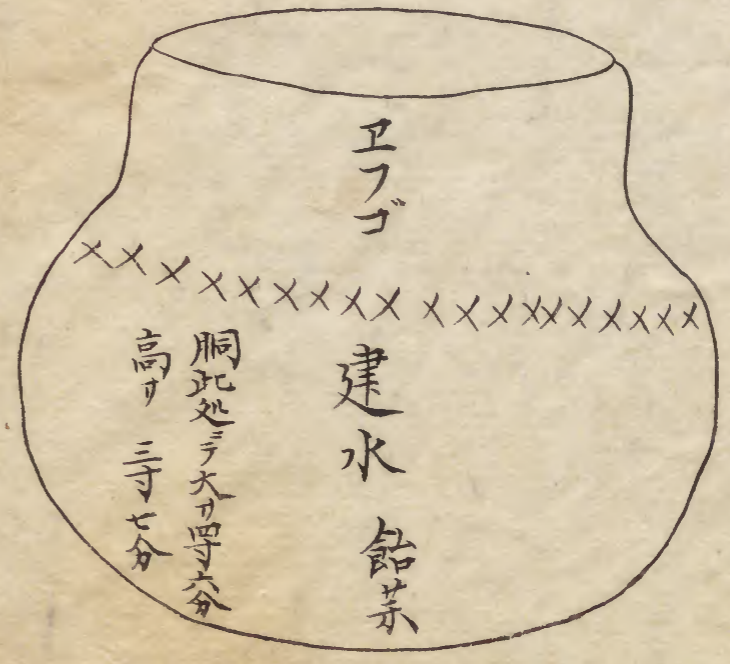 ヱフゴ
建水 飴茶
胴此処ニテ大サ四寸六分
高サ 三寸七分